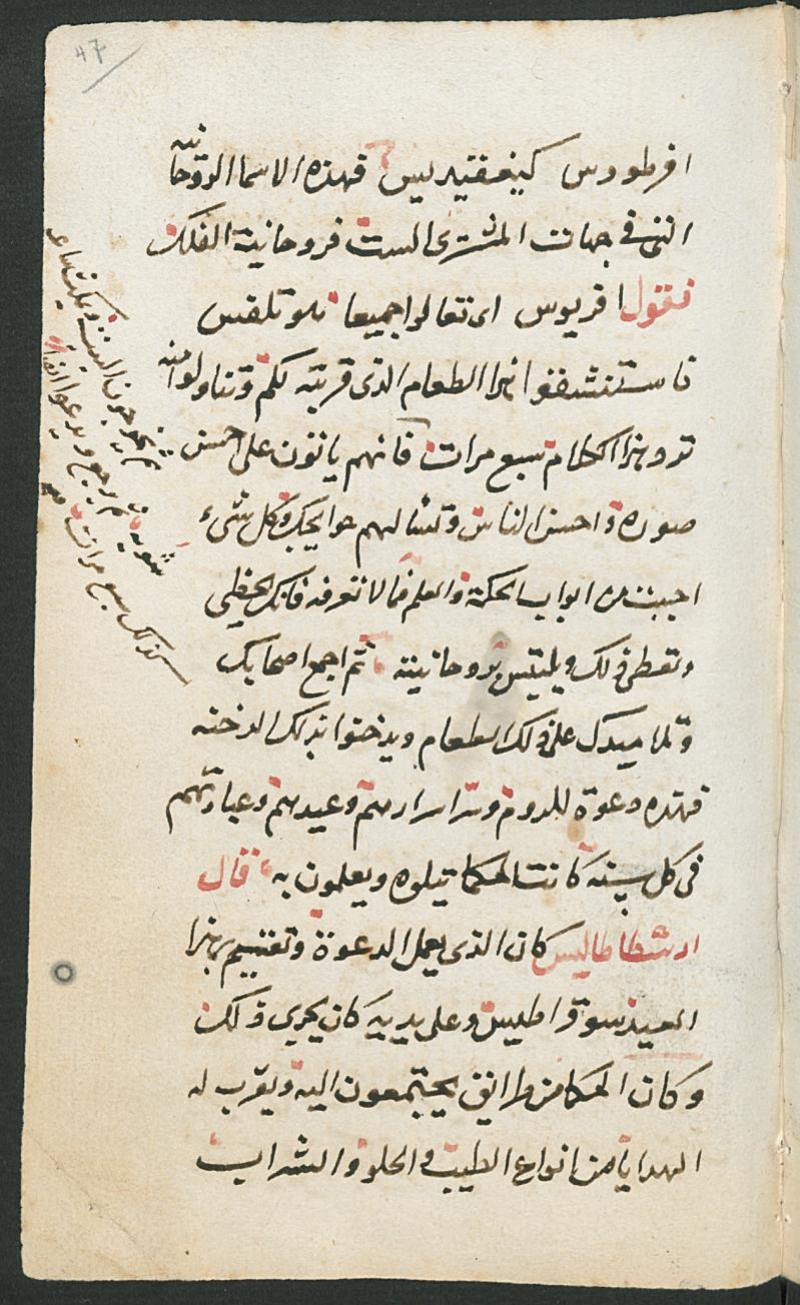 47
افرطودس كيغفتيديس فهذه الاسما الروحانية
التى فى جهات المشترى الست فروحانية الفلك
فتقول افريوس اى تعالوا جميعا
فاستنشقوا هذا الطعام الذى قربته لكم وتناولوا منه
تردد هذا الكلام سبع مرات فانهم ياتون على احسن
صوره واحسن لباس وتسالهم حوايجك وكل شىء
احببت من ابواب الحكمة والعلم فمالا تعرفه فانك تحظى
وتعطى ذلك بروحانيته ثم اجمع اصحابك
على ذلك الطعام ويدخنوا بذلك الدخنه
فهذه دعوة للروم وسر اسرارهم وعيدهم وعبادتهم
فى كل سنه كانت الحكما تتلوه ويعلمون به قال
ارسطاطاليس كان الذى يعمل الدعوة وتقتسيم بهذا
العيد سوقراطيس وعلى يديه كان يجرى ذلك
وكان الحكما من يجتمعون اليه ويقرب له
الهدايا من انواع الطيب والحلو والشراب
ثم يخرجون البيت ويمكث ساعه
ثم يرجع ويدعوا
كذلك سبع مرات